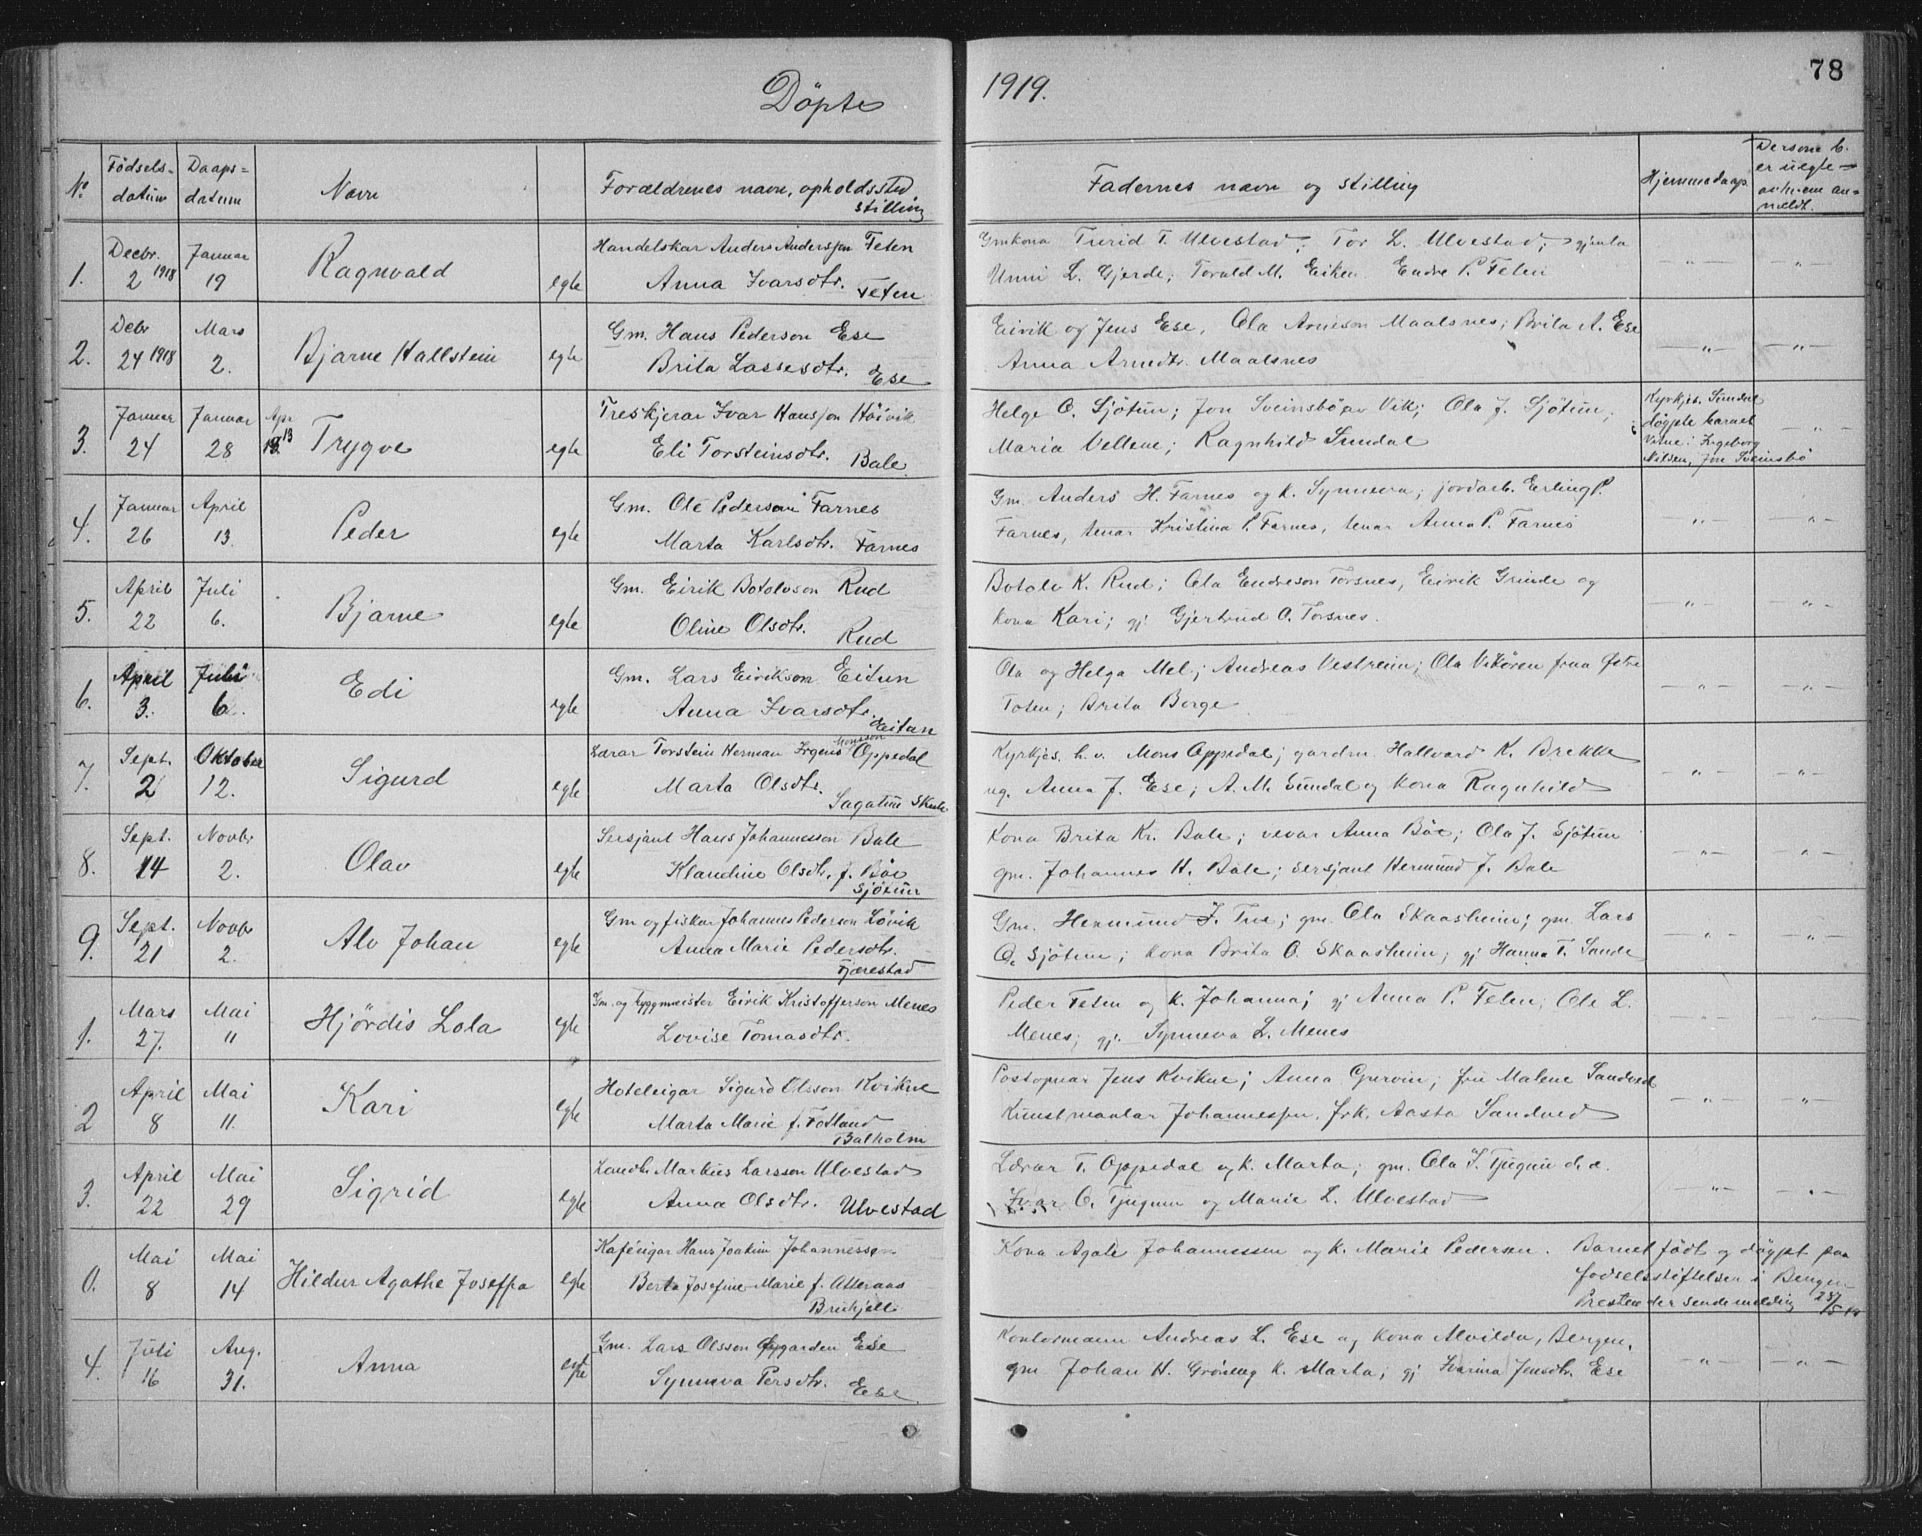 Döpte
1919.
78
No
Fødsels-
datum
Daaps-
datum
Navn
Forældrenes navn, opholdssted,
stilling
Fadernes navn og stilling
Hjemmedaap.
Dersom b.
er uegte
av hvem an-
meldt.
1.
Decbr.
2 1918
Januar
19
Ragnvald
egte
Handelskar Anders Anderssen Feten
Anna Ivarsdtr. Feten
Gmkona Turid T. Ulvestad; Tor L. Ulvestad; gjenta
Unni L. Gjerde; Torald M. Eiken Endre P. Feten
— " —
"
2.
Debr
24 1918
Mars
2.
Bjarne Hallstein
egte
Gm. Hans Pederson Ese
Brita Lassesdtr. Ese
Eirik og Jens Ese, Ola Arneson Maalsnes; Brita A. Ese
Anna Arnedtr. Maalsnes
— " —
— " —
3.
Januar
24
Januar
28
Apr
13
Trygve
egte
Treskjerar Ivar Hansson Høivik
Eli Torsteinsdtr. Bale
Helge O. Sjøtun; Jon Sveinsbø Vik; Ola J. Sjøtun;
Maria Vellene; Ragnhild Sundal
Kyrkjes. Sundal
døypte barnet
Vitne: Ingeborg
Nilsen, Jon Sveinsbø
— " —
4.
Januar
26
April
13.
Peder
egte
Gm. Ole Pederson Farnes
Marta Karlsdtr. Farnes
Gm. Anders H. Farnes og k. Synneva; jordarb. Erling P.
Farnes, tenar Kristina P. Farnes, tenar Anna P. Farnes
— " —
— " —
5.
April
22
Juli
6.
Bjarne
egte
Gm. Eirik Botolvson Rud
Oline Olsdtr. Rud
Botolv K. Rud; Ola Endreson Torsnes, Eirik Grinde og
kona Kari; gj Gjertrud O. Torsnes.
— " —
— " —
6.
April
3.
Juli
6.
Edi
egte
Gm. Lars Eirikson Eitun
Anna Ivarsdtr. Eitun
Ola og Helga Mel; Andreas Vestreim; Ola Vikøren fraa Østre
Toten; Brita Borge
— " —
— " —
7.
Sept.
2
Oktober
12.
Sigurd
egte
Monsson
Lærar Torstein Herman Irgens Oppedal
Marta Olsdtr. Sagatun Skule
Kyrkjes. h.v. Mons Oppedal; gardm. Hallvard K. Brekke
ug. Anna J. Ese; A. M. Sundal og kona Ragnhild
— " —
— " —
8.
Sept.
14
Novbr
2.
Olav
egte
Sersjant Hans Johannesson Bale
Klaudine Olsdtr. f. Bøe
Sjøtun
Kona Brita Kr. Bale; vevar Anna Bøe; Ola J. Sjøtun
gm. Johannes H. Bale; sersjant Hermund J. Bale
— " —
— " —
9.
Sept.
21
Novbr
2.
Alv Johan
egte
Gm og fiskar Johannes Pederson Løvik
Anna Marie Pedersdtr.
Fjærestad
Gm. Hermund J. Tue; gm. Ola Skaasheim; gm. Lars
O. Sjøtun; kona Brita O. Skaasheim; gj Hanna T. Sande
— " —
— " —
1.
Mars
27.
Mai
"
Hjördis Lola
egte
Gm. og byggmeister Eirik Kristofferson Menes
Lovise Tomasdtr.
Peder Feten og k. Johanna; gj Anna P. Feten; Ole L.
Menes; gj. Synneva L. Menes
— " —
— " —
2
April
8
Mai
11.
Kari
egte
Hoteleigar Sigurd Olsson Kvikne
Marta Marie f. Fotland
Balholm
Postopnar Jens Kvikne; Anna Gurvin; fru Malene Sandved
Kunstmaalar Johannessen, frk. Aasta Sandved
— " —
— " —
3.
April
22
Mai
29
Sigrid
egte
Landh. Markus Larsson Ulvestad
Anna Olsdtr. Ulvestad
Lærar T. Oppedal og k. Marta; gm. Ola I. Tjugum d. e.
Ivar O. Tjugum og Marie L. Ulvestad
— " —
— " —
0.
Mai
8
Mai
14
Hildur Agathe Joseffa
egte
Kaféeigar Hans Joakim Johannessen
Berta Josefine Marie f. Atteraas
Breihjell
Kona Agate Johannessen og k. Marie Pedersen. Barnet født og døypt paa
fødselsstiftelsen i Bergen
Presten der sende melding 28/5 19
4.
Juli
16
Aug.
31.
Anna
egte
Gm. Lars Olsson Øygarden Ese
Synneva Persdtr. Ese
Kontormann Andreas L. Ese og kona Alvilda, Bergen,
gm Johan H. Grøneng k. Marta; gj Ivarina Jensdtr. Ese
— " —
— " —